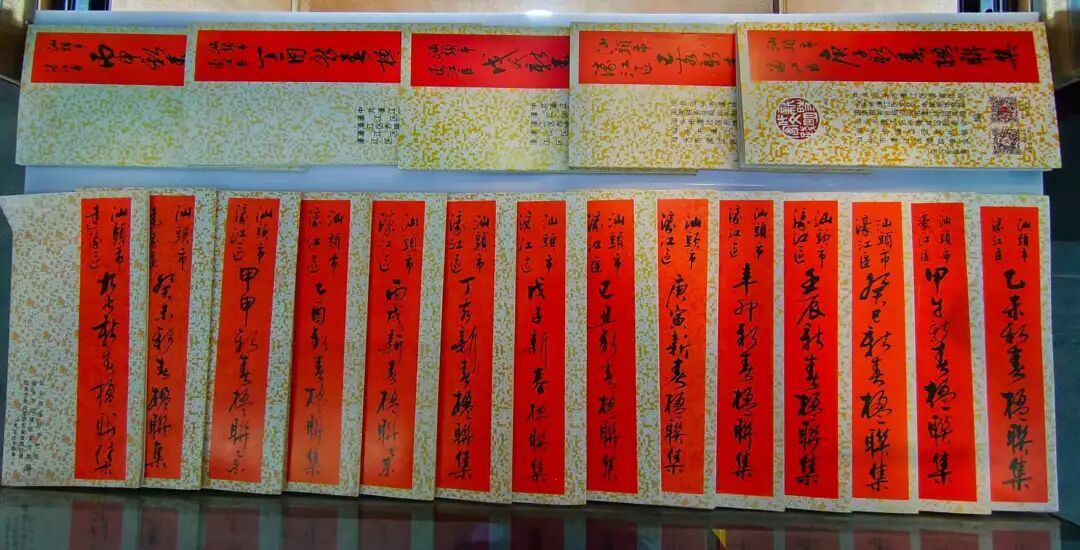 汕頭市
濠江區
丙申新春
汕頭市
濠江區
丁酉新春楹
汕頭市
濠江區
戊戌新春
汕頭市
濠江區
己亥新春
汕頭市
濠江區
庚子新春楹聯集
汕頭市
達濠區
壬午新春楹聯集
汕頭市
達濠區
癸未新春楹聯集
汕頭市
濠江區
甲申新春楹聯集
汕頭市
濠江區
乙酉新春楹聯集
汕頭市
濠江區
丙戌新春楹聯集
汕頭市
濠江區
丁亥新春楹聯集
汕頭市
濠江區
戊子新春楹聯集
汕頭市
濠江區
己丑新春楹聯集
汕頭市
濠江區
庚寅新春楹聯集
汕頭市
濠江區
辛卯新春楹聯集
汕頭市
濠江區
壬辰新春楹聯集
汕頭市
濠江區
癸巳新春楹聯集
汕頭市
濠江區
甲午新春楹聯集
汕頭市
濠江區
乙未新春楹聯集